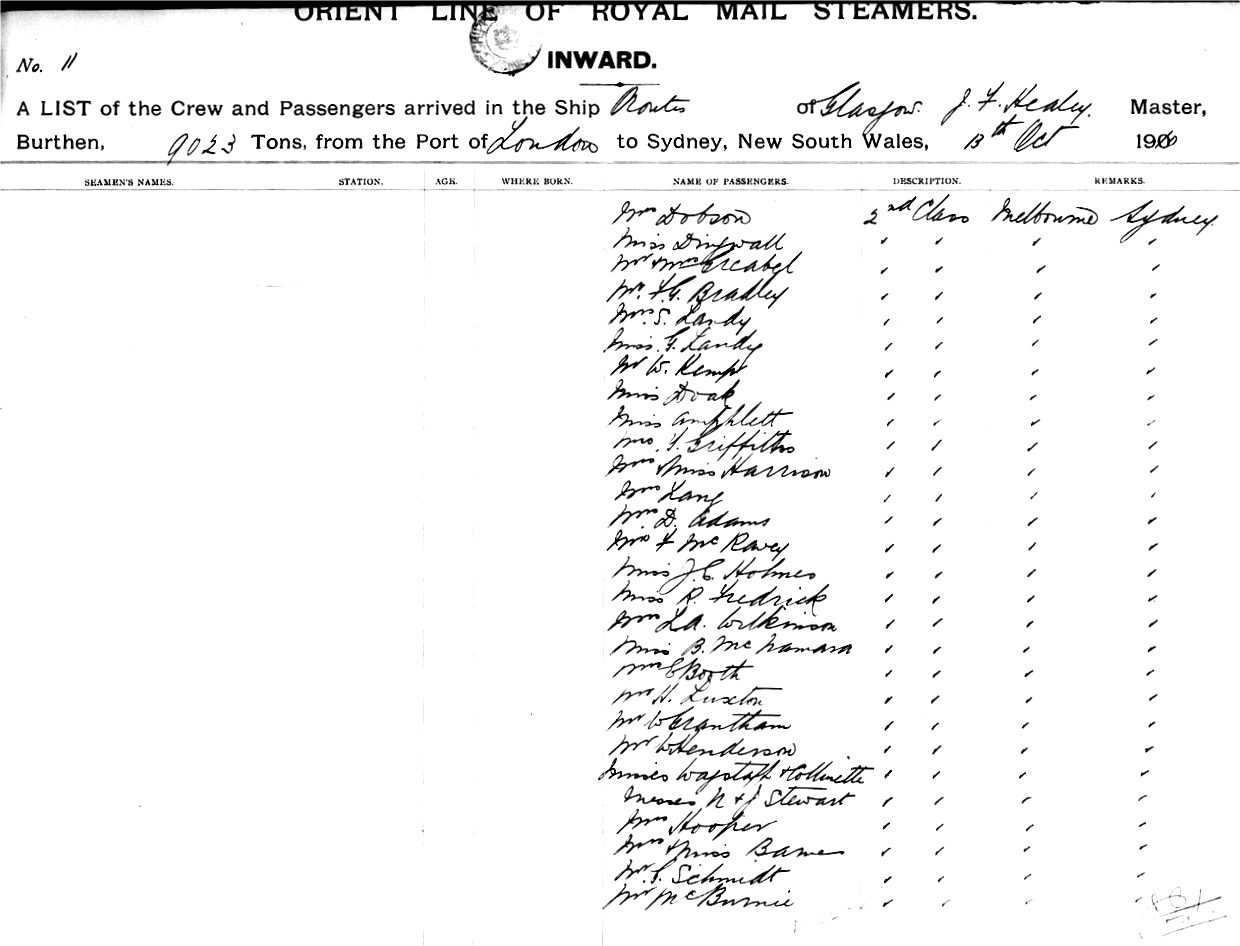 ORIENT LINE OF ROYAL MAIL STEAMERS.
No. 11
INWARD.
A LIST of the Crew and Passengers arrived in the Ship Orontes of Glasgow. J. F. Healey. Master,
Burthen, 9023 Tons, from the Port of London to Sydney, New South Wales, 13th Oct 190
SEAMEN'S NAMES. STATION. AGE. WHERE BORN. NAME OF PASSENGERS. DESCRIPTION. REMARKS.
Mrs Dobson 2nd Class Melbourne Sydney
Miss Dingwall " " " "
Mr & Mrs " " " "
Mr. F.G. Bradley " " " "
Mrs. S. Landy " " " "
Miss. G. Landy " " " "
Mr W. Kemp " " " "
Miss Doak " " " "
Miss Amphlett " " " "
Mrs. F. Griffiths " " " "
Mrs & Miss Harrison " " " "
Mrs Lang " " " "
Mrs D. Adams " " " "
Mrs F McRavey " " " "
Miss J.C. Holmes " " " "
Miss R. Fredrick " " " "
Mrs L.A. Wilkinson " " " "
Miss B. McNamara " " " "
Mrs E Booth " " " "
Mr H. Luxton " " " "
Mr W Grantham " " " "
Mr W Henderson " " " "
Misses Wagstaff & Collinette " " " "
Messrs N & J Stewart " " " "
Mrs Hooper " " " "
Mrs & Miss Barnes " " " "
Mr. G. Schmidt " " " "
Mr McBurnie " " " "